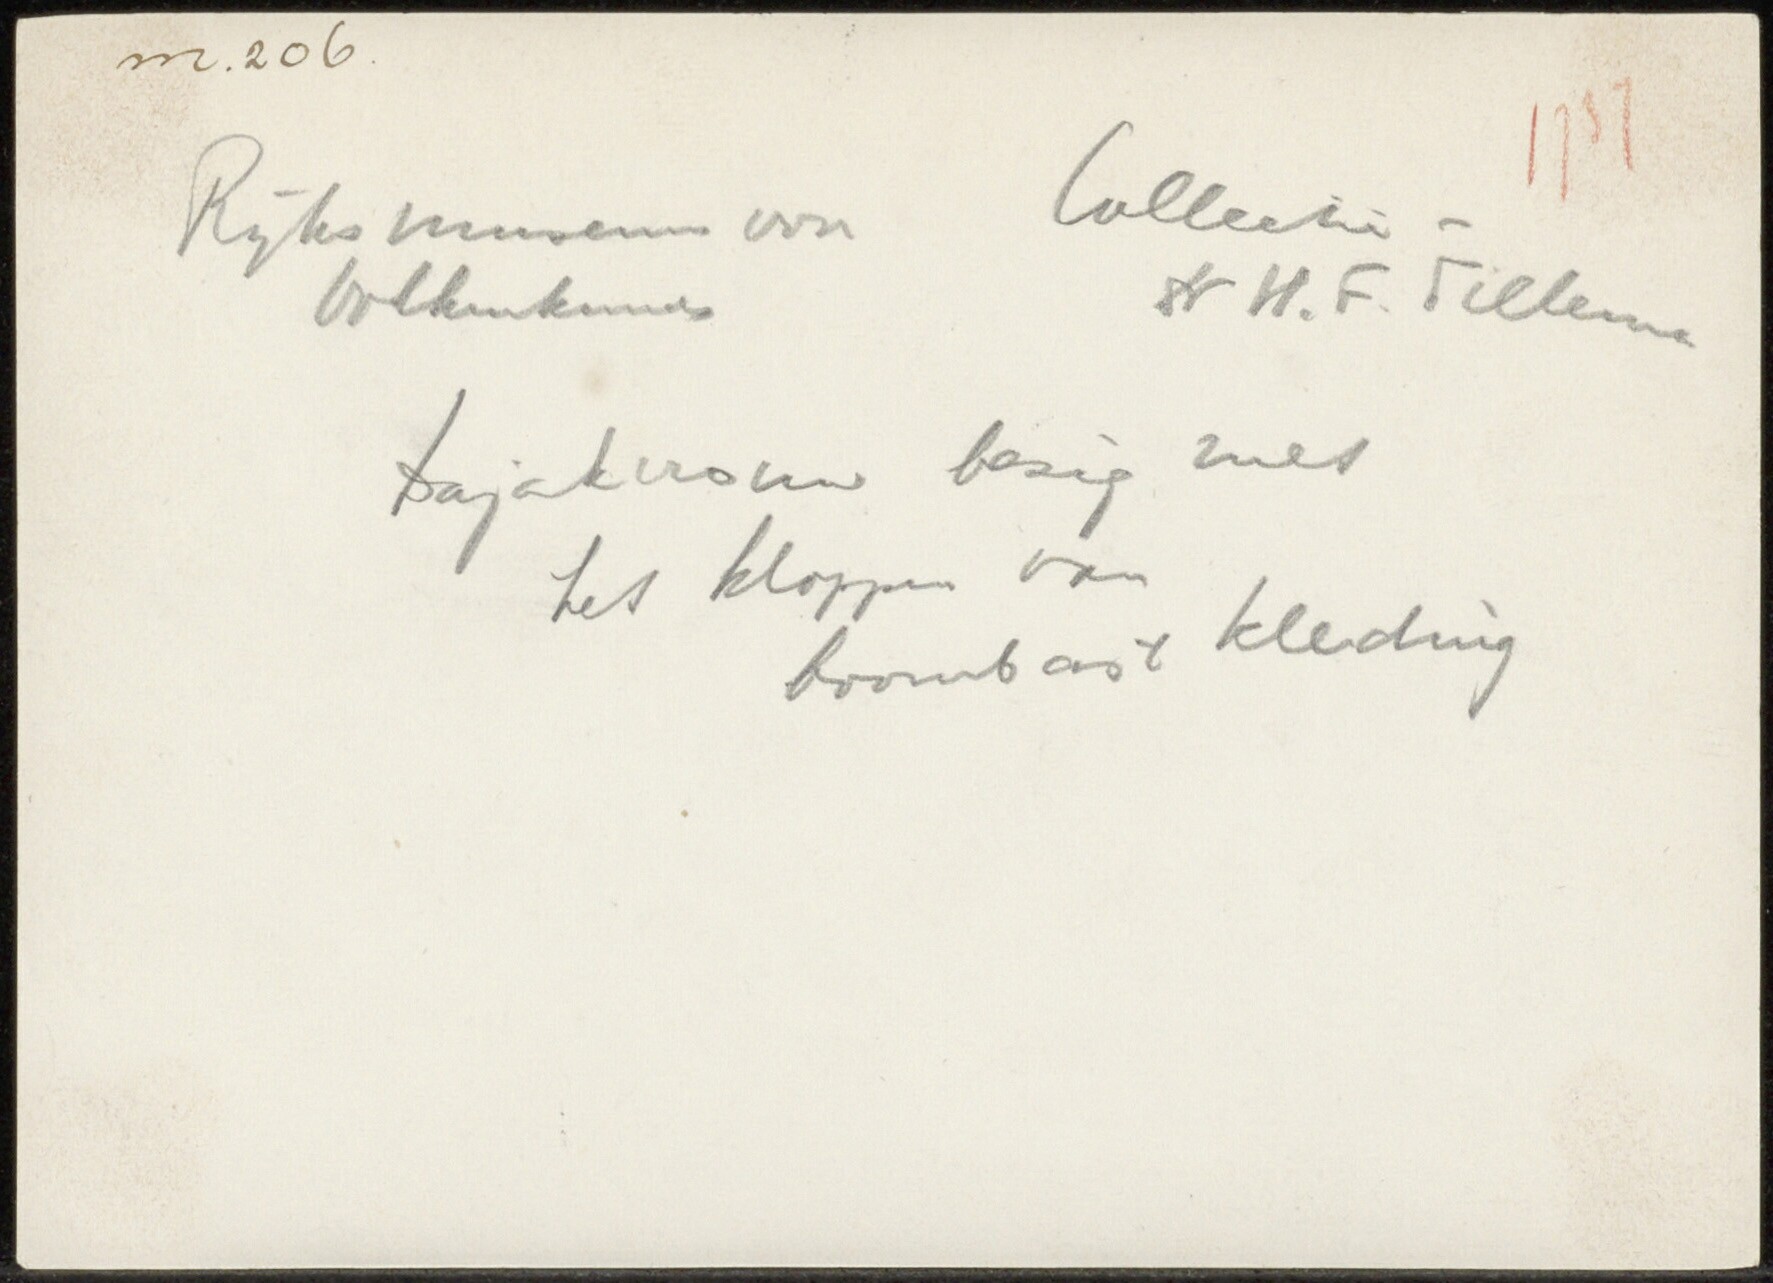 m.206.
1937
Rijksmuseum voor
Volkenkunde
Collectie -
Dr H. F. Tillema
Dajakvrouw bezig met
het kloppen van
boombast kleding